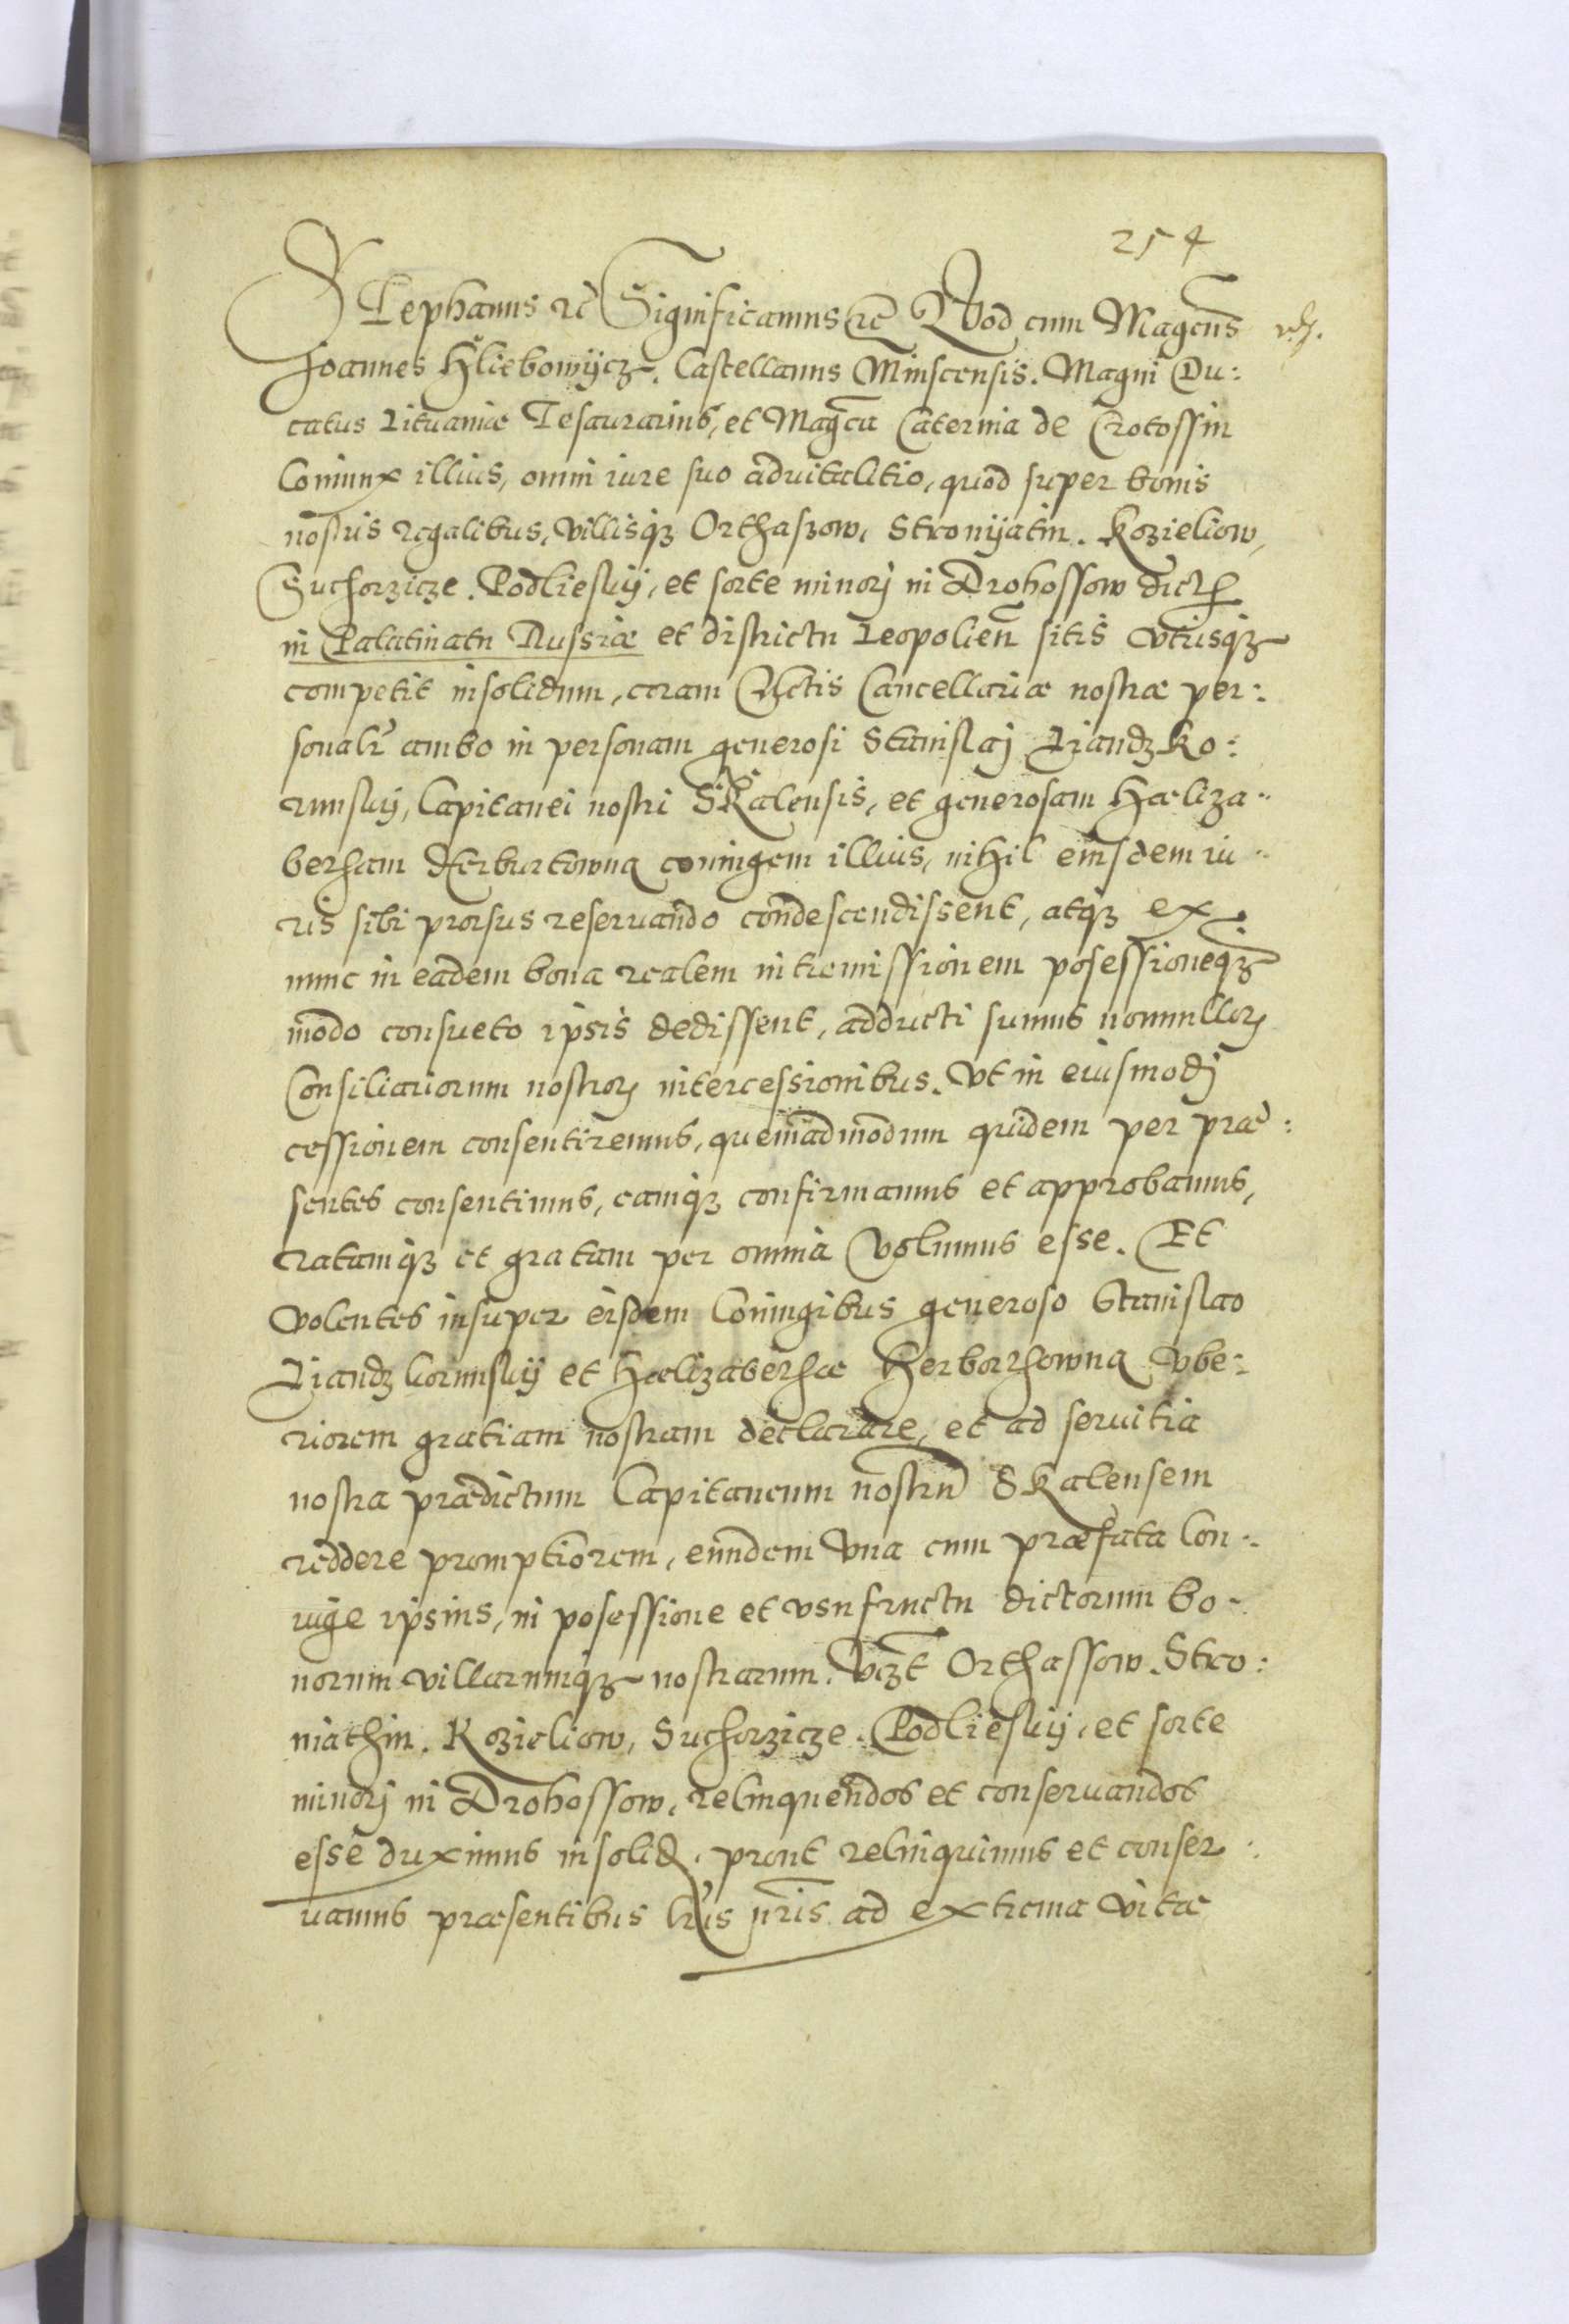 254
Stephanus etc Significamus etc Quod cum Magcus
Joannes Hliebowijcz. Castellanus Minscensis. Magni Du:
catus Lituaniæ Tesaurarius, et Magca Caterina de Crotossin
Coniunx illius, omni iure suo aduitalitio, quod super bonis
nostris regalibus, villisqз Orthaszow, Stronijatin. Kozieliow,
Suchorzicze. Podlieskij, et sorte minorj in Drohossow dict
in Palatinatu Russiæ et districtu Leopolien sitis vtrisqз
competit insolidum, coram Actis Cancellariæ nostræ per:
sonalr ambo in personam generosi Stanislaj Liandzko:
runskij, Capitanei nostri Skalensis, et generosam Hæliza:
betham Herburtowna coniugem illius, nihil eiusdem iu:
ris sibi prorsus reseruando condescendissent, atqз ex
nunc in eadem bona realem intromissionem posessioneqз
modo consueto ipsis dedissent, adducti sumus nonnullor
Consiliariorum nostror intercessionibus. Vt in eiusmodj
cessionem consentiremus, quemadmodum quidem per præ:
sentes consentimus, eamqз confirmamus et approbamus,
ratamqз et gratam per omnia volumus esse. Et
volentes insuper eisdem Coniugibus generoso Stanislao
Liandzkorunskij et Hælizabethæ Herborthowna vbe:
riorem gratiam nostram declarare, et ad seruitia
nostra prædictum Capitaneum nostru Skalensem
reddere promptiorem, eundem vna cum præfata Con:
iuge ipsius, in posessione et vsufructu dictorum bo:
norum villarumqз nostrarum. Vczt Orthassow. Stro:
niathin. Kozieliow, Suchorzicze. Podlieskij, et sorte
minorj in Drohossow, relinquendos et conseruandos
esse duximus insolid. prout relinquimus et conser:
uamus præsentibus lris nris ad extrema vitæ